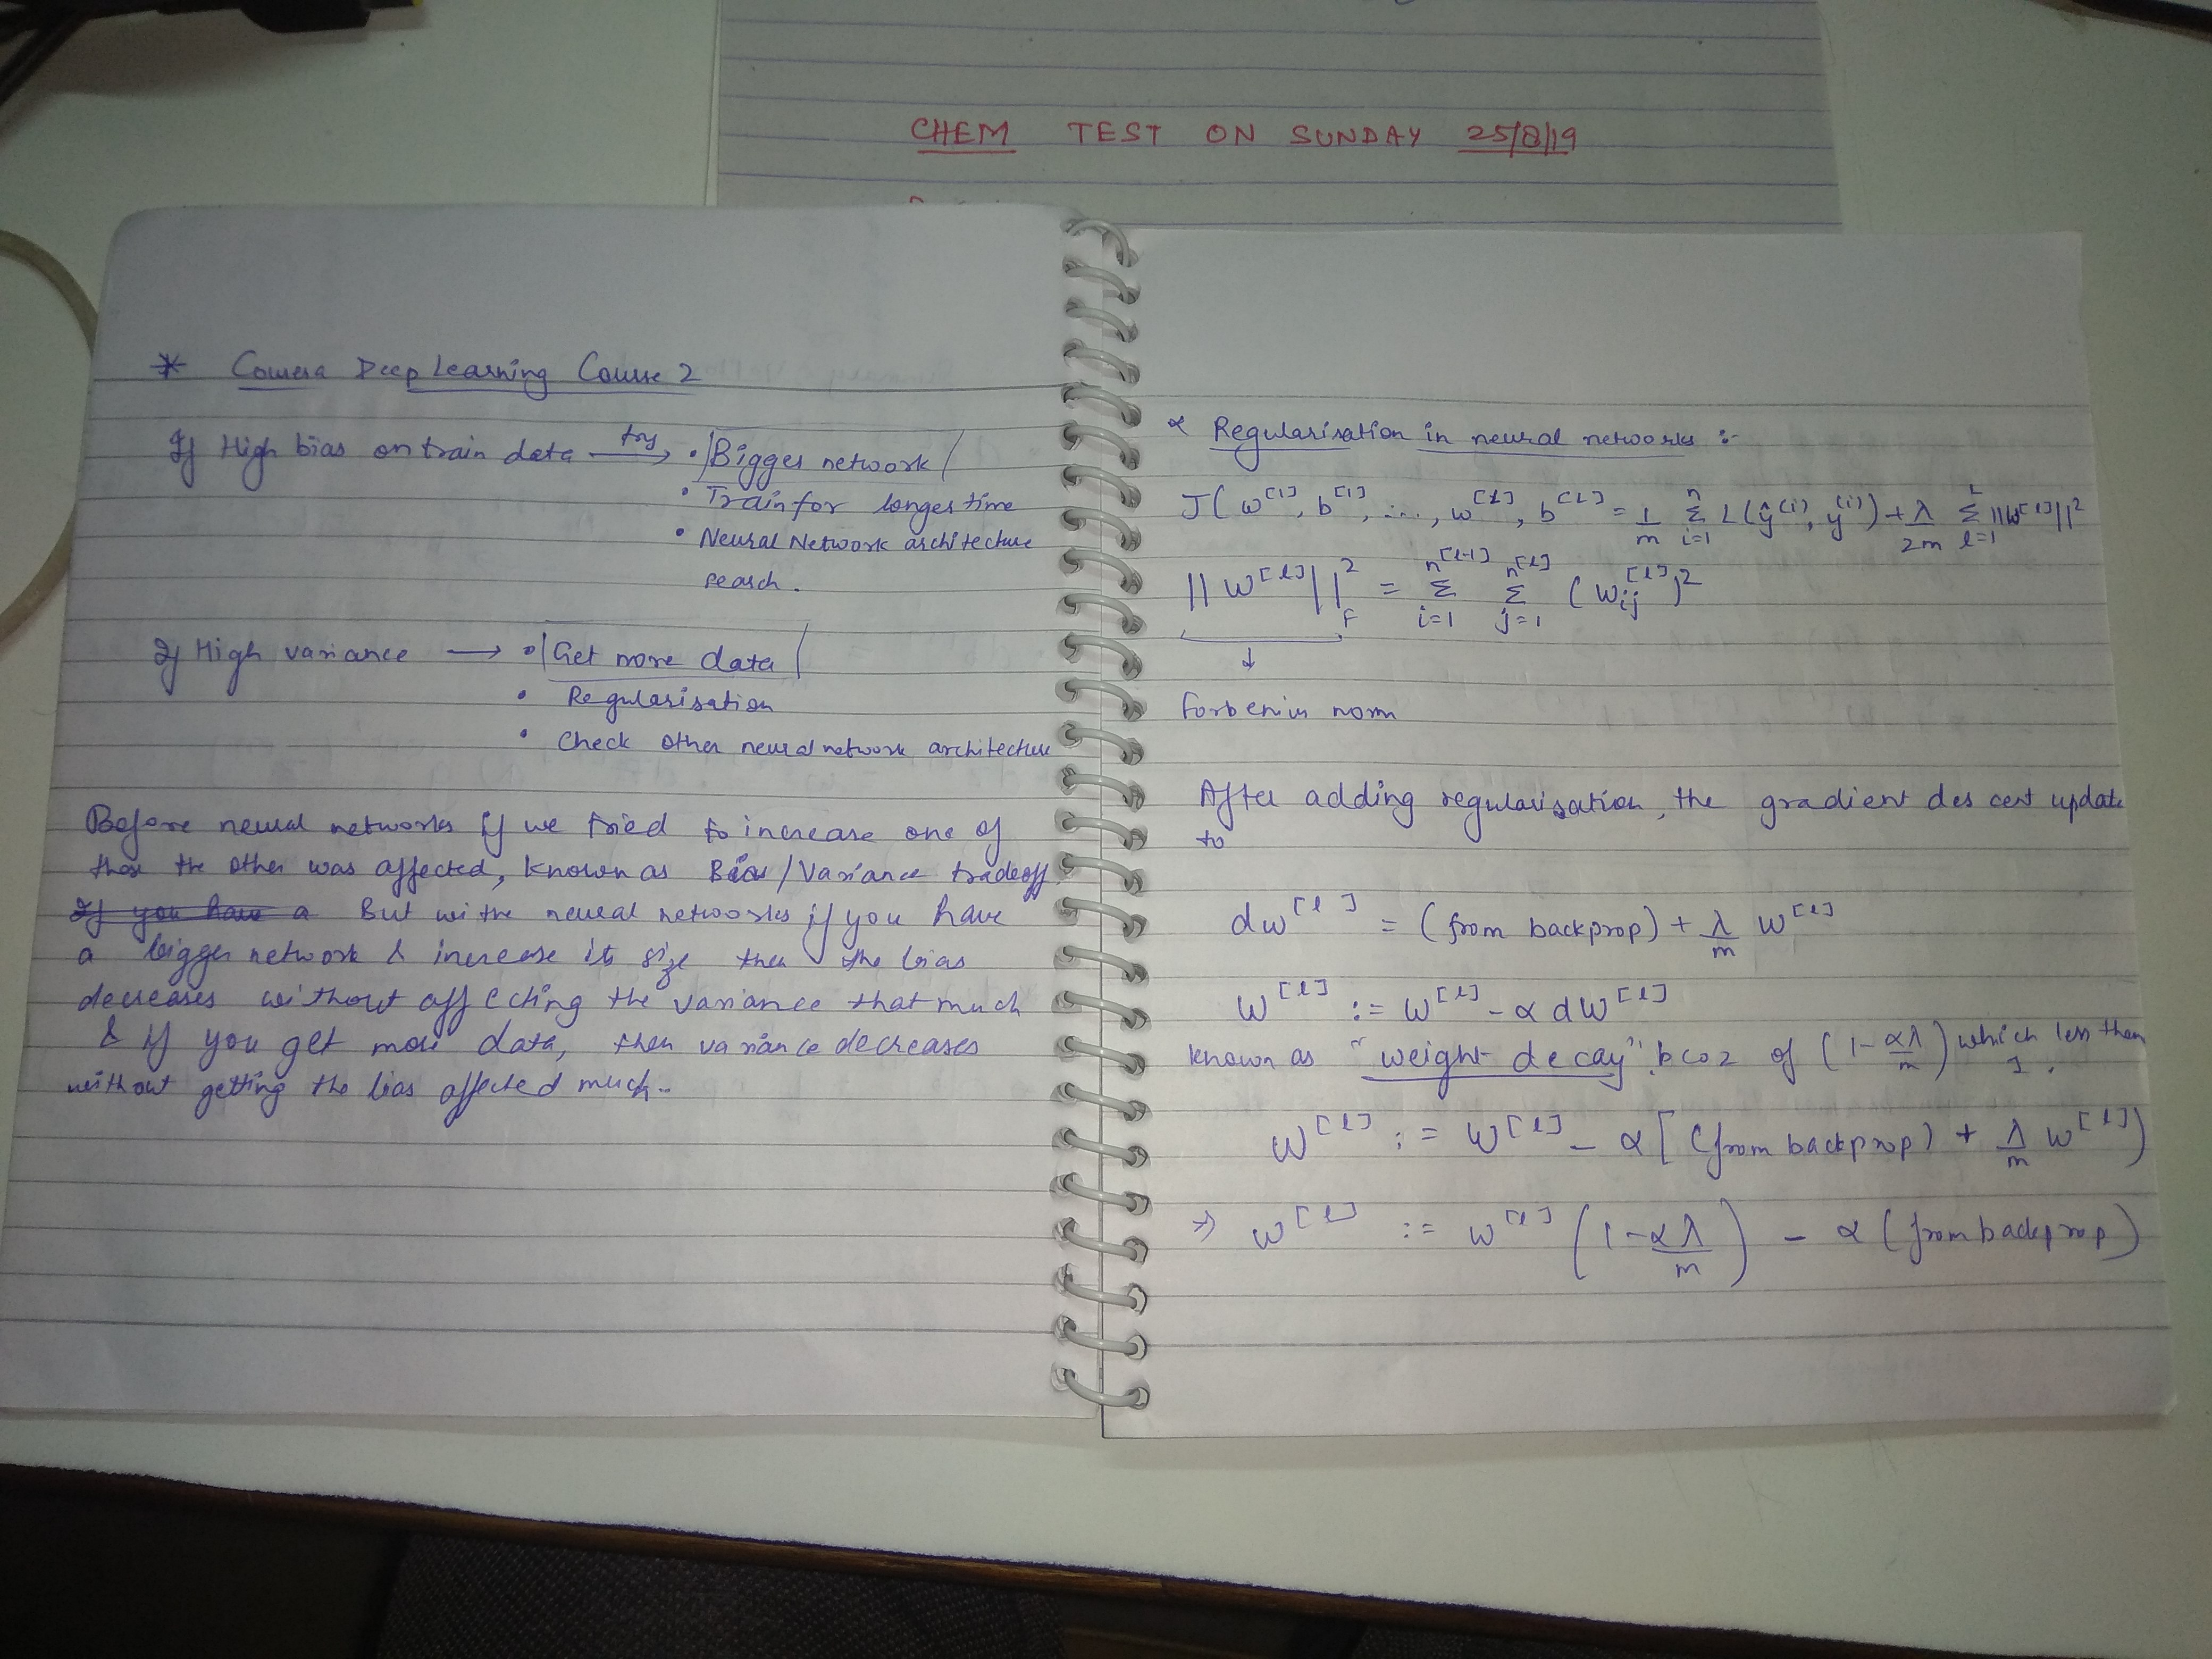 CHEM TEST ON SUNDAY 25/8/19
* Coursera Deep Learning Course 2
If High bias on train data —try→ • |Bigger network|
• Train for longer time
• Neural Network architecture
search.
If High variance → • |Get more data|
• Regularisation
• Check other neural network architecture
Before neural networks if we tried to increase one of
the other was affected, known as Bias/Variance tradeoff.
If you have a But with neural networks if you have
a bigger network & increase its size then the bias
decreases without affecting the variance that much
& if you get more data, then variance decreases
without getting the bias affected much..
* Regularisation in neural networks :-
J(w^[1], b^[1], ..., w^[L], b^[L] = 1/m Σ_{i=1}^{n} L(ŷ^(i), y^(i)) + λ/2m Σ_{l=1}^{L} ||W^[l]||²
||W^[l]||²_F = Σ_{i=1}^{n^[l-1]} Σ_{j=1}^{n^[l]} (W_ij^[l])²
↓
Forbenius norm
After adding regularisation, the gradient descent update
to
dw^[l] = (from backprop) + λ/m W^[l]
W^[l] := W^[l] - α dW^[l]
known as "weight decay". bcoz of (1 - αλ/m) which less than
1.
W^[l] := W^[l] - α [(from backprop) + λ/m W^[l])
⇒ W^[l] := W^[l] (1 - αλ/m) - α (from backprop)